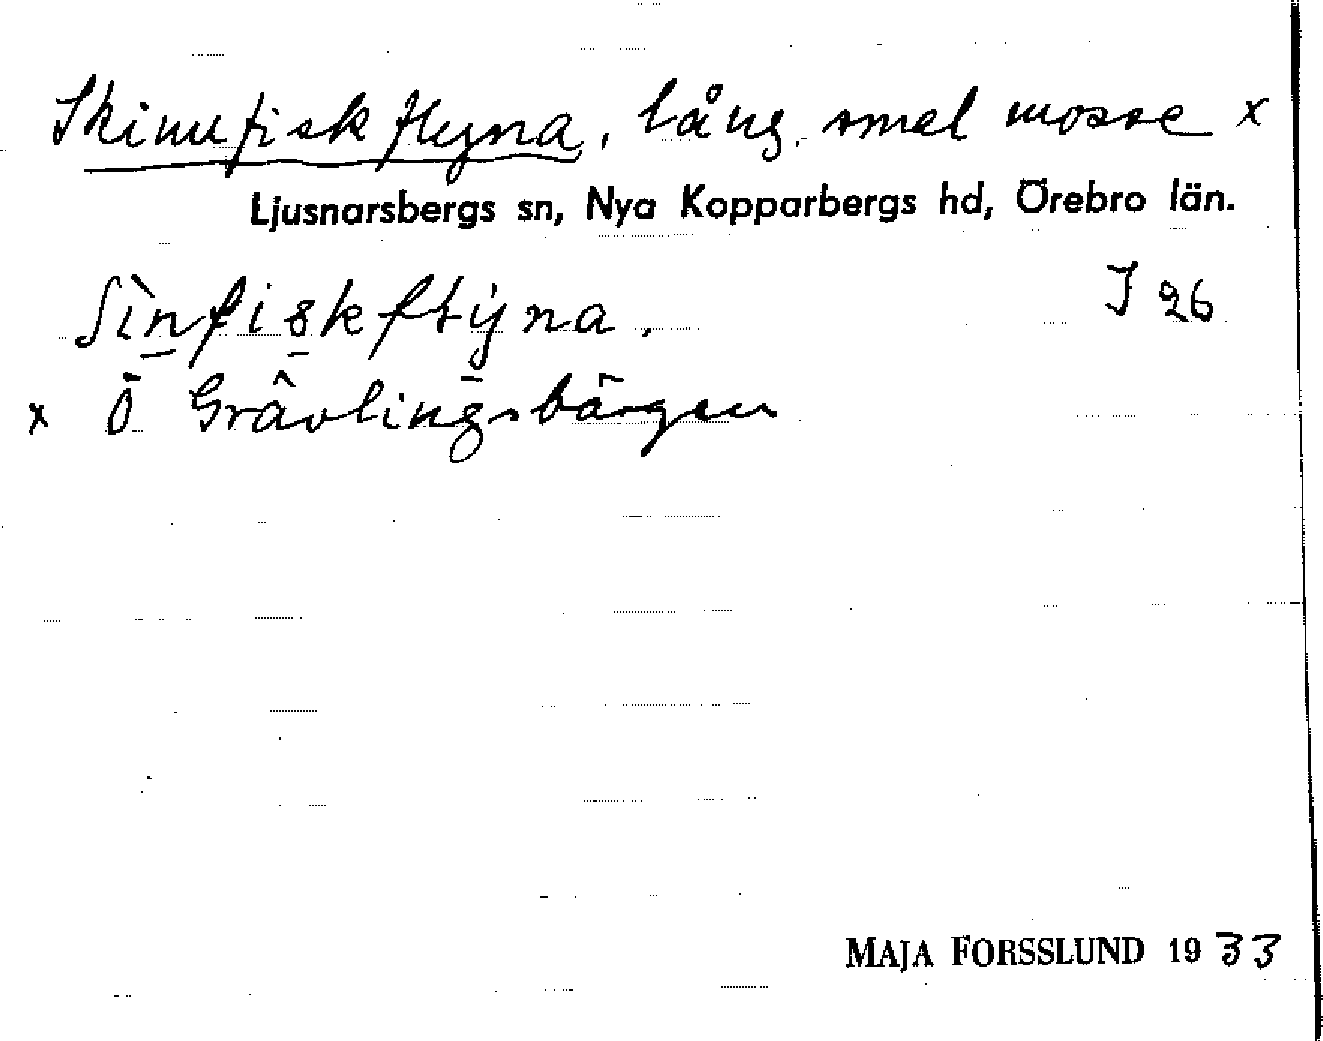 Skinnfiskflyna, lång, smal mosse x
Ljusnarsbergs sn, Nya Kopparbergs hd, Örebro län.
I 26
x Ö Grâvlingsbärgen
MAJA FORSSLUND 1933